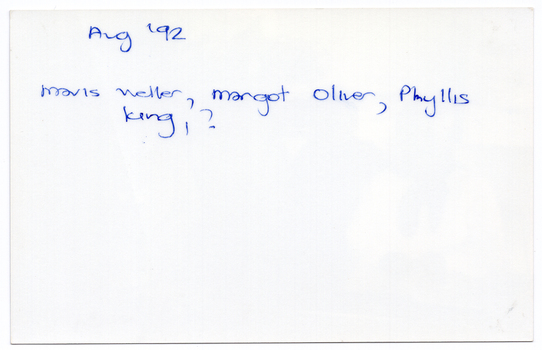 Aug '92
Mavis Weller, Margot Oliver, Phyllis
King, ?